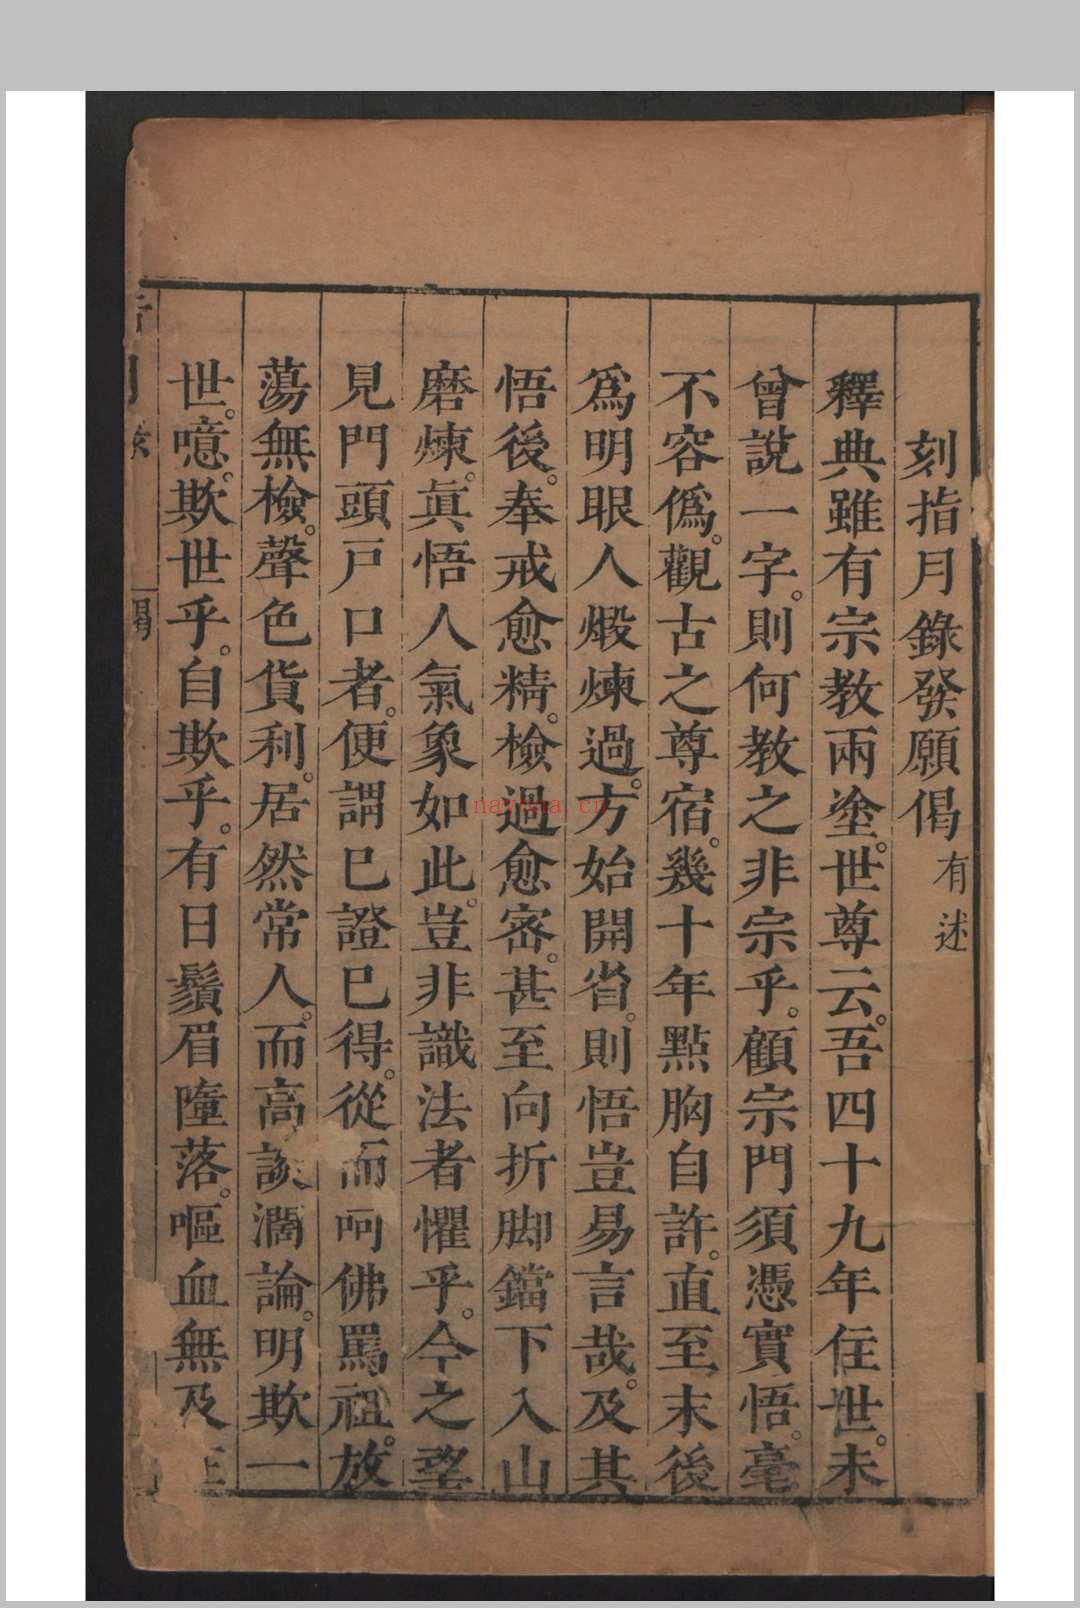 刻指月錄發願偈有述
釋典雖有宗教兩塗。世尊云。吾四十九年住世。未
曾說一字。則何教之非宗乎。顧宗門須憑實悟。毫
不容僞。觀古之尊宿。幾十年點胸自許。直至末後
爲明眼人煅煉過。方始開省。則悟豈易言哉。及其
悟後。奉戒愈精。檢過愈密。甚至向折脚鐺下入山
磨煉。眞悟人氣象如此。豈非識法者懼乎。今之望
見門頭戸口者。便謂已證已得。從而呵佛罵祖。放
蕩無檢。聲色貨利。居然常人。而高談濶論。明欺一
世。噫。欺世乎。自欺乎。有日鬚眉墮落。嘔血無及
nayona.cn